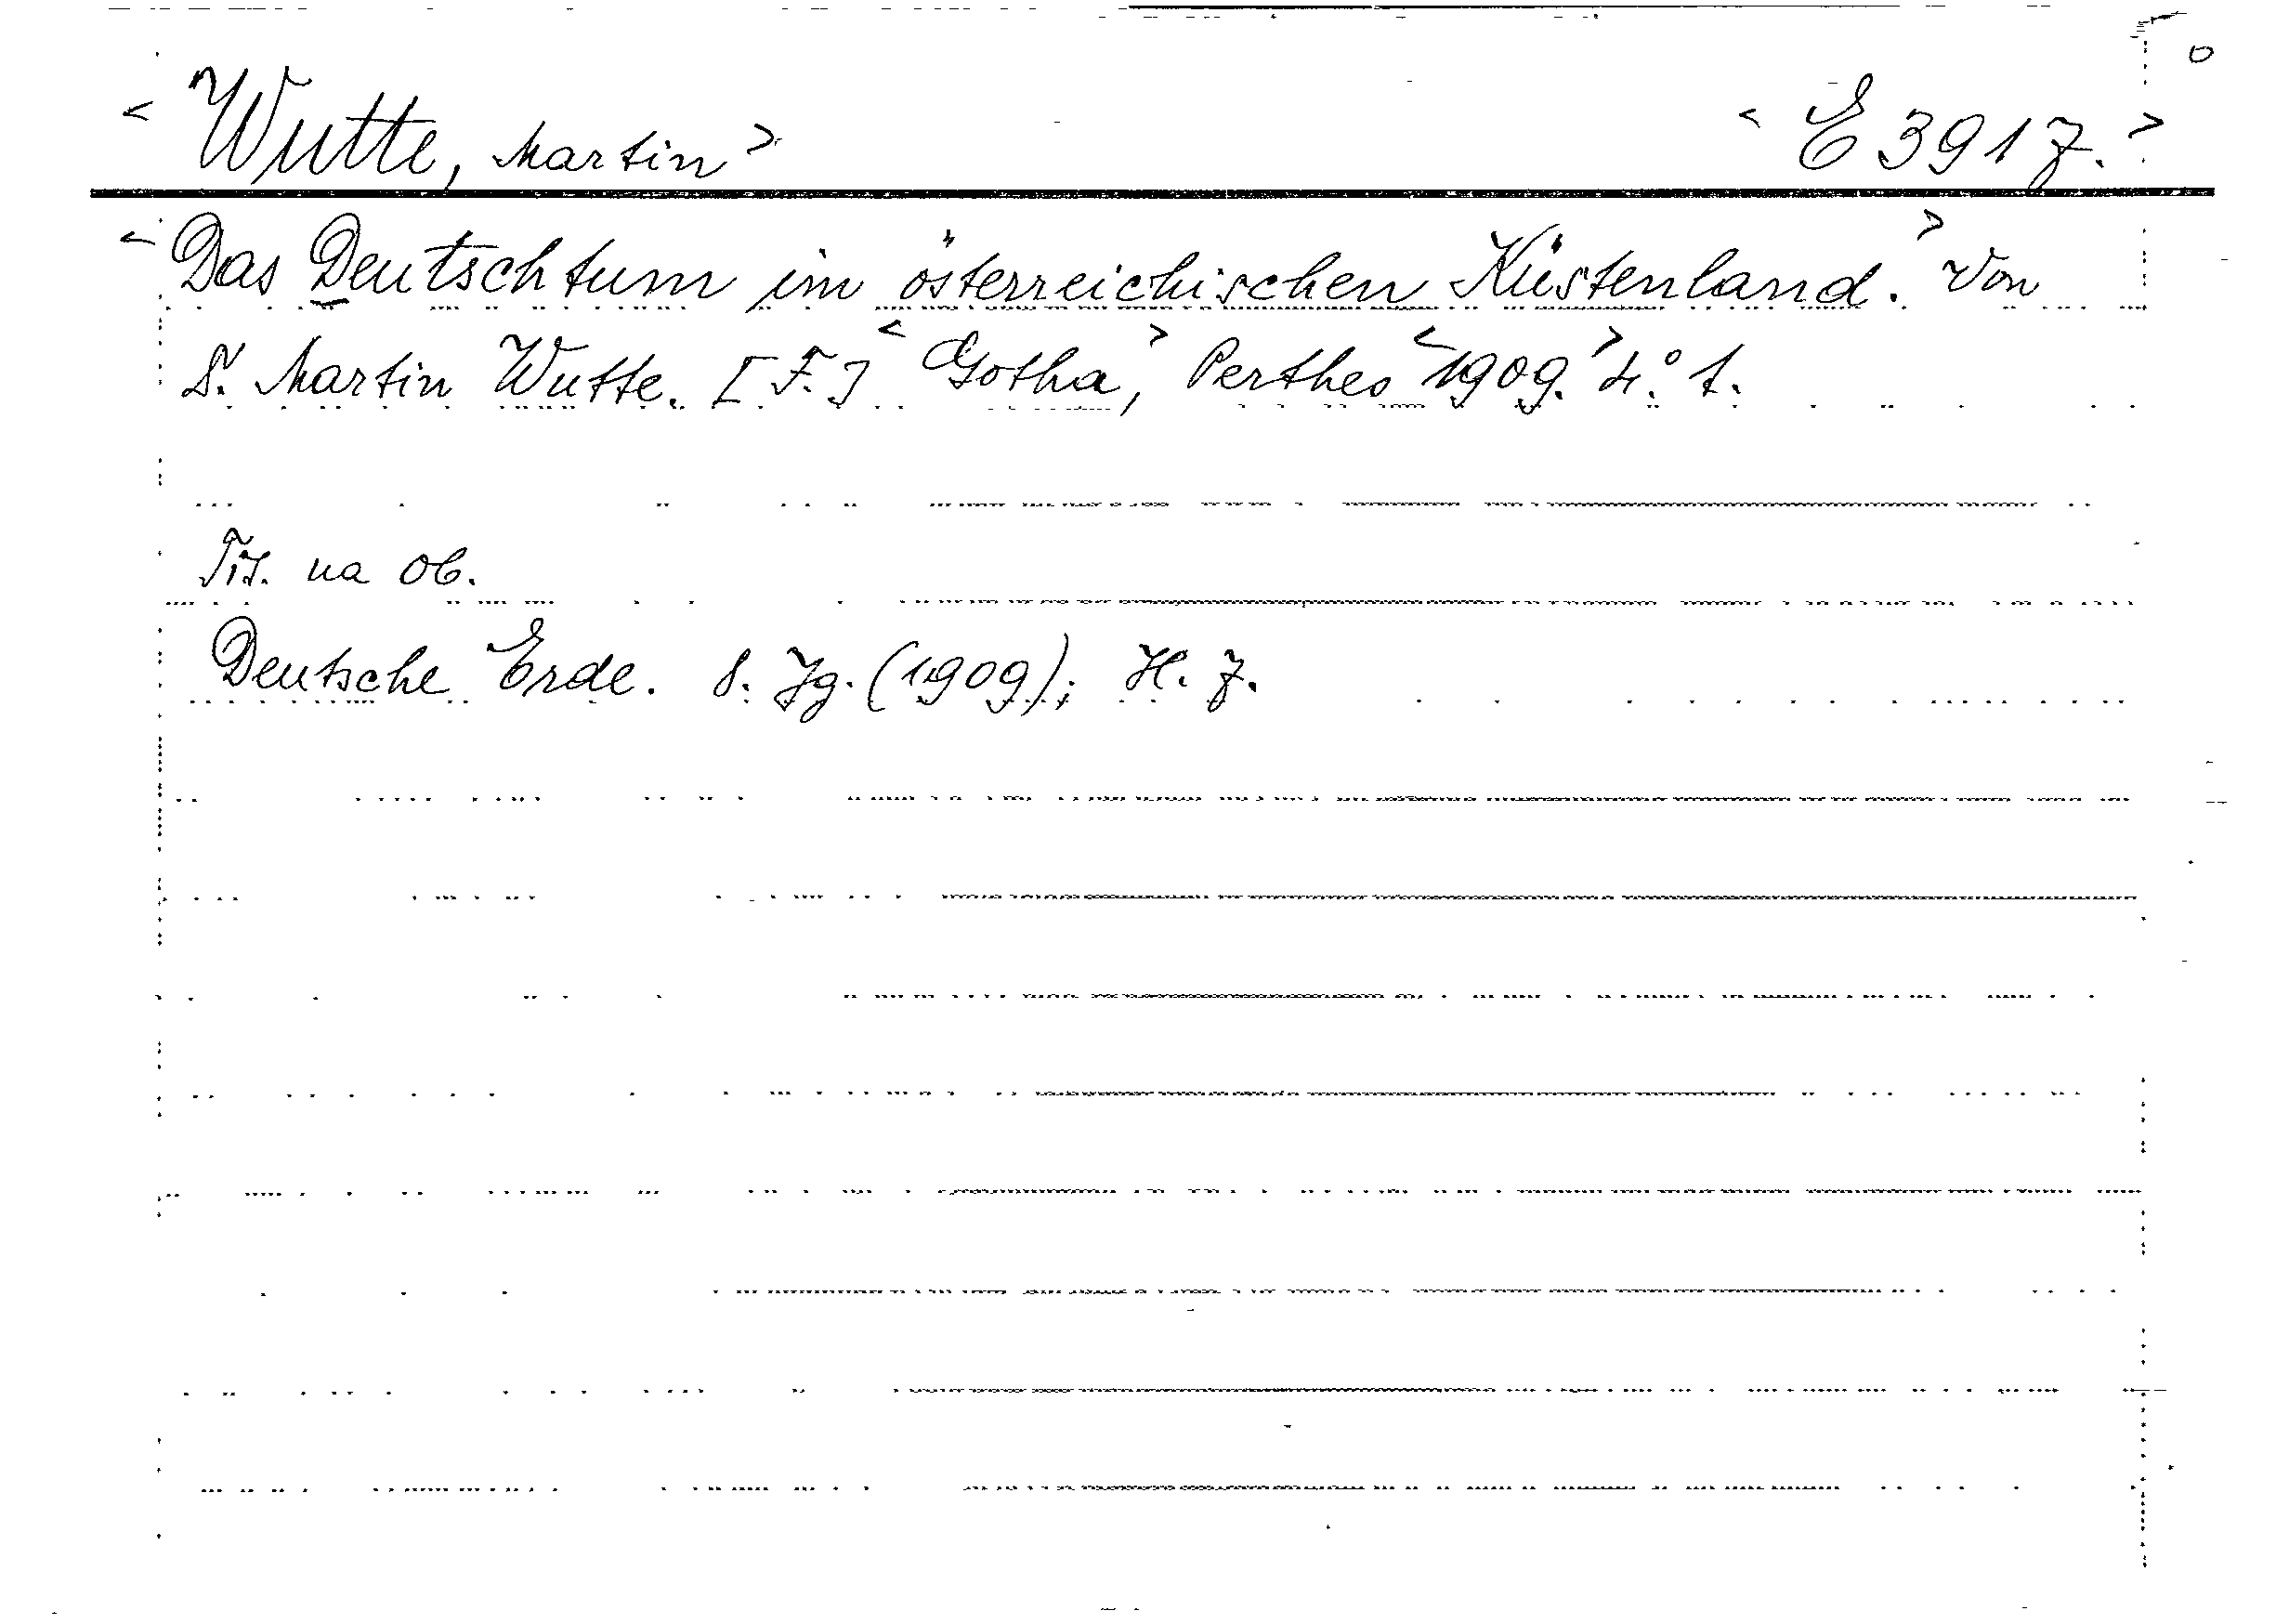 <Wutte, Martin> <E 3917.>
<Das Deutschtum im österreichischen Küstenland.> Von
D. Martin Wutte. [F.] <Gotha,> Perthes <1909.> 4.° 1.
Tit. na ob.
Deutsche Erde. 8. Jg. (1909); H. 7.